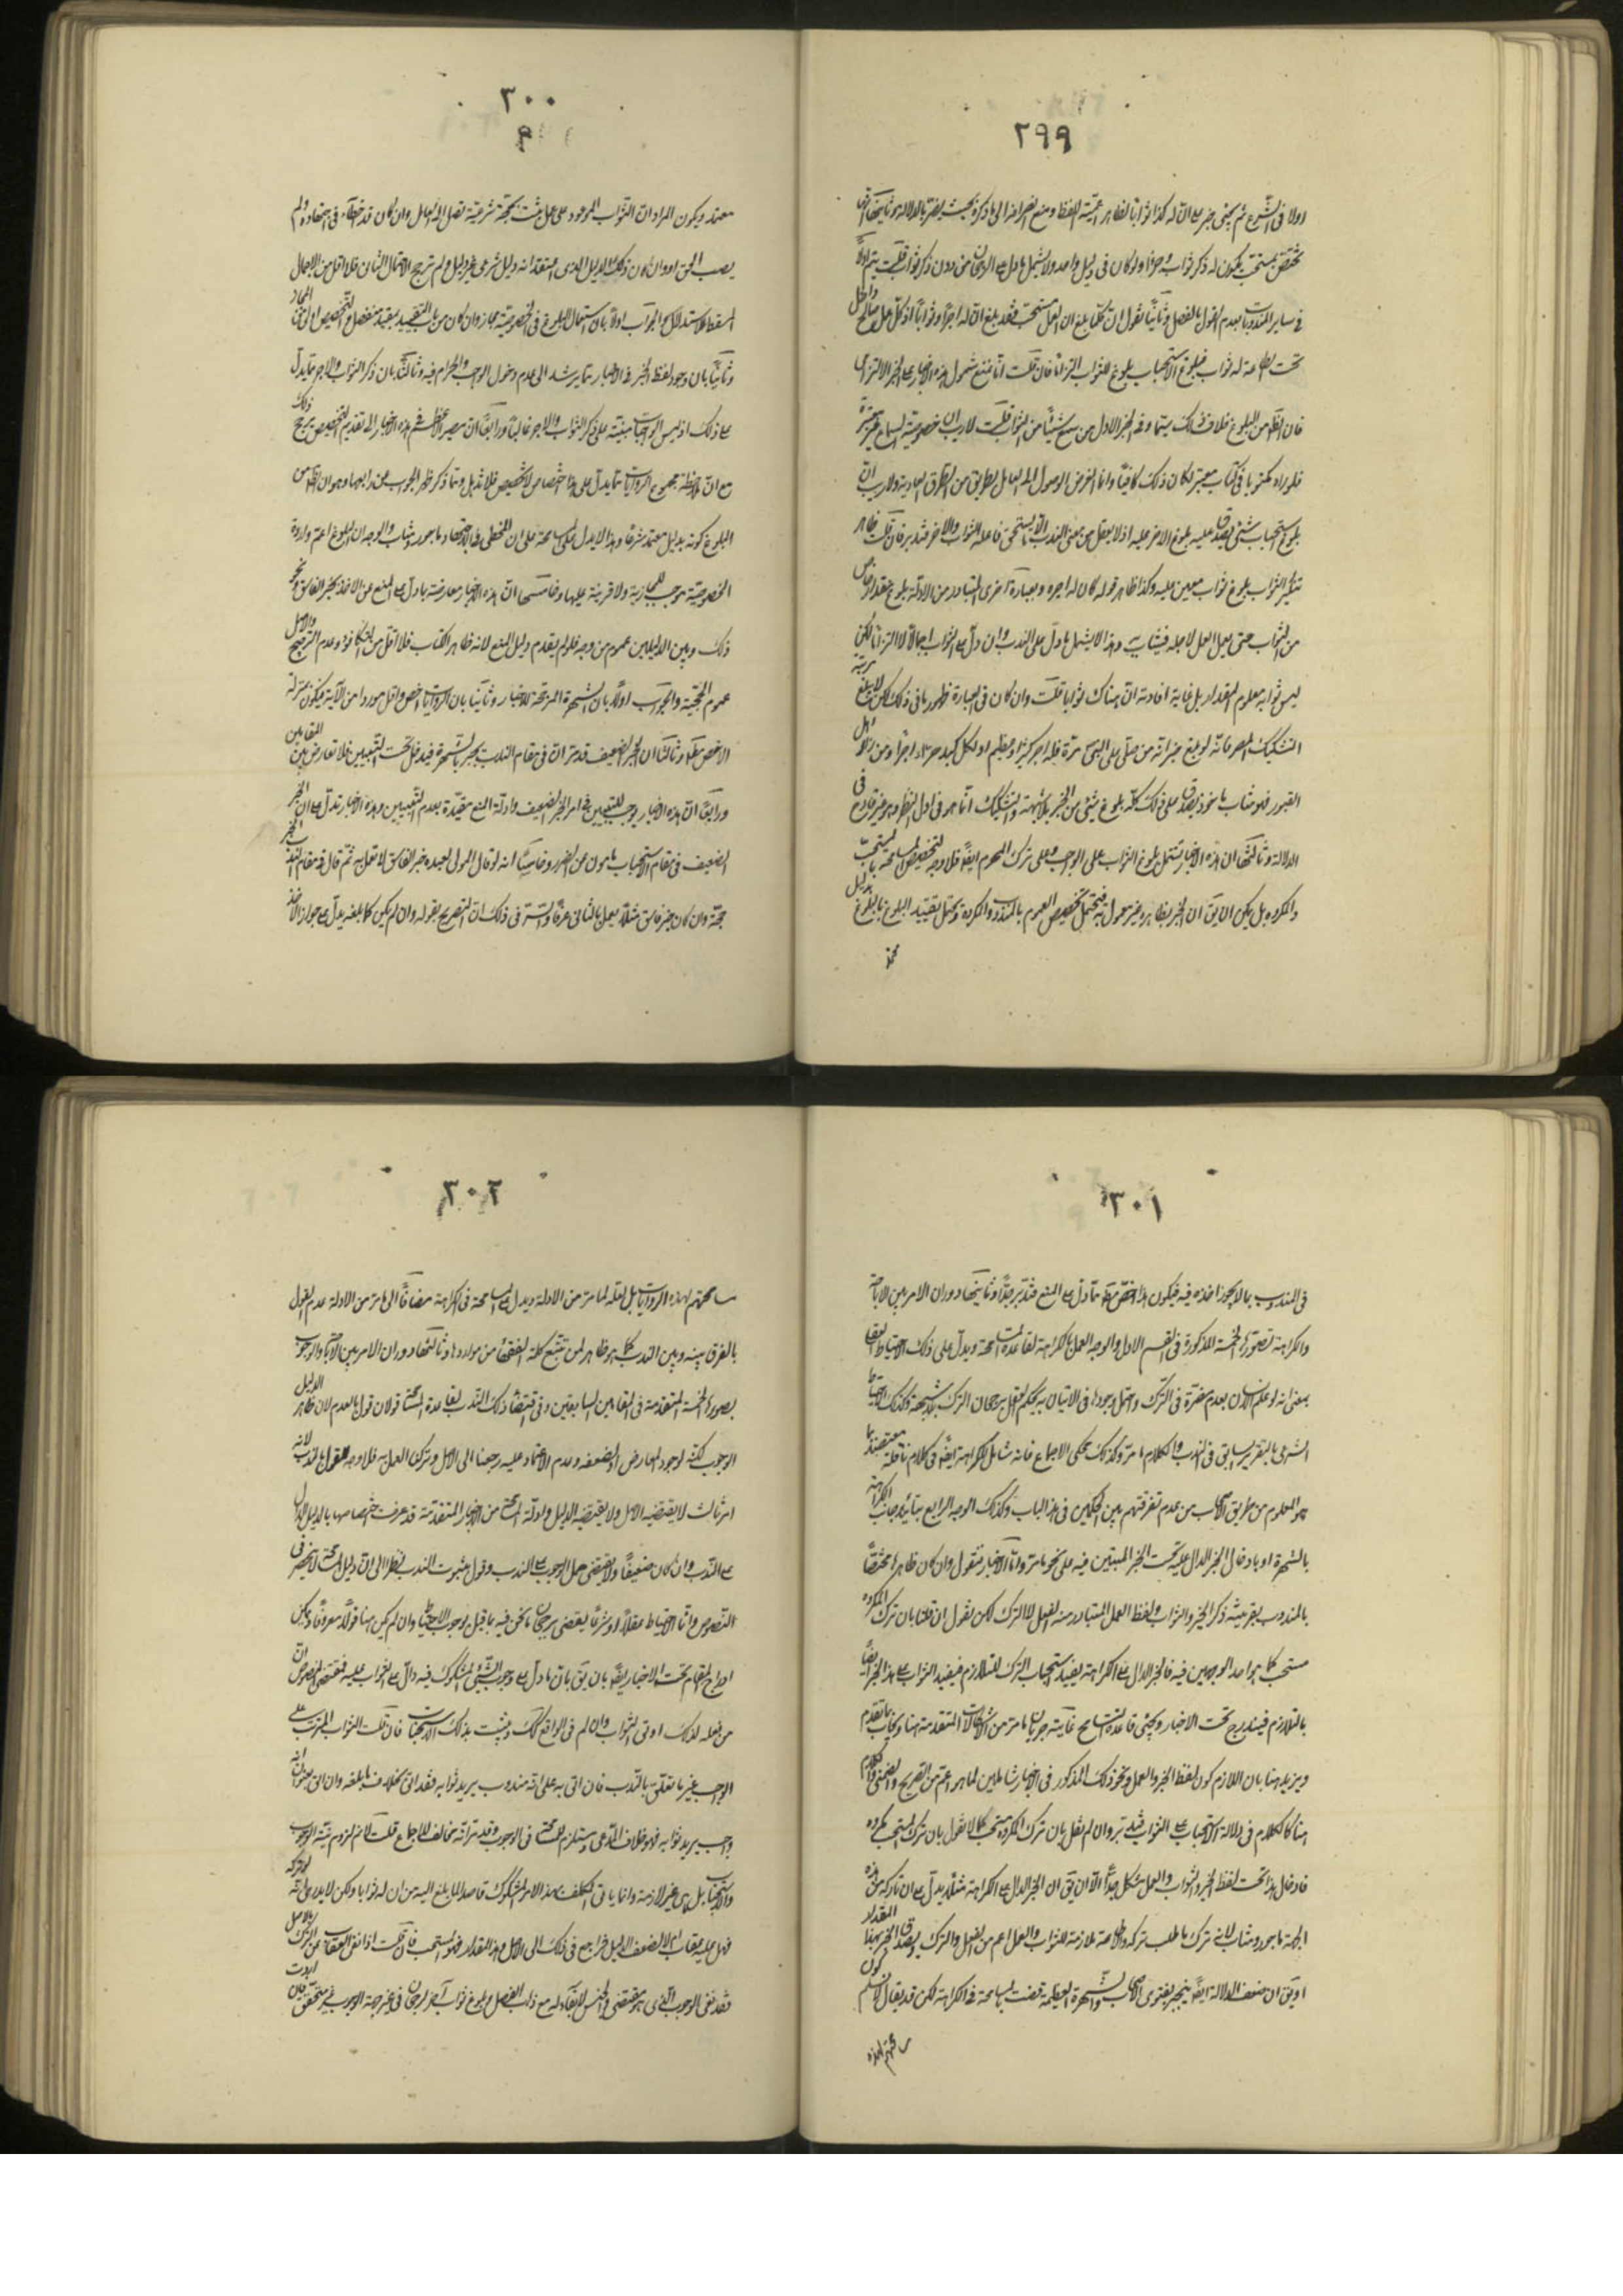 ٢٩٩
اولا فى الشرع ثم يجئ خبر على ان له كذا ثوابا لظاهر اعمية اللفظ ومنع انصرافه الى ما ذكره بحيث يضر بالدلالة وثانيهما انها
تختص بمستحب يكون له ذكر ثواب ولو كان فى دليل واحد ولا يشمل ما دل على الرجحان من دون ذكر ثواب قلت يتم اولا
فى ساير المندوبات بعدم القول بالفصل وثانيا نقول ان كلما بلغ ان العمل مستحب فقد بلغ ان له اجرا وثوابا اذ كل عمل صالح داخل
تحت الطاعة له ثواب فبلوغ الاستحباب بلوغ للثواب التزاما فان قلت انا نمنع شمول هذه الاخبار على الخبر الالتزامى
فان الظ من البلوغ خلاف ذلك سيما وفى الخبر الاول من سمع شيئا من الثواب قلت لا ريب ان خصوصية السماع غير معتبرة
فلو راه مكتوبا فى كتاب معتبر لكان ذلك كافيا وانما الغرض الوصول الى العامل بطريق من الطرق العادية ولا ريب ان
بلوغ استحباب شئ يصدق عليه بلوغ الاجر عليه اذ لا يعقل من معنى الندب الا ما يستحق فاعله الثواب والاجر فتدبر فان قلت ظاهر
تنكير الثواب بلوغ ثواب معين عليه وكذا ظاهر قوله كان له اجره وبعبارة اخرى المتبادر من الادلة بلوغ مقدار خاص
من الثواب حتى يعمل العمل لاجله فيثاب به وهذا لا يشمل ما دل على الندب وان دل على الثواب اجمالا لا التزاما لكن
ليس ثوابه معلوم المقدار بل غاية افادته ان هناك ثوابا قلت وان كان فى العبارة ظهور ما فى ذلك لكن لا يبلغ مرتبة
التشكيك المضر فانه لو بلغ خبر انه من صلى على النبى مرة فله اجر كثير او عظيم او لكل كبد حراء اجرا ومن زار اهل
القبور فهو مثاب ماجور يصدق على ذلك كله بلوغ شئ من الخبر بلا شبهة والتشكيك انما هو فى اول النظر وهو غير قادح فى
الدلالة وثالثها ان هذه الاخبار تشمل بلوغ الثواب على الوجوب وعلى ترك المحرم ايضا فلا وجه لتخصيص المسامحة بالمستحب
والمكروه بل يمكن ان يق ان الخبر بظاهره غير معمول به فيحتمل تخصيص العموم بالمندوب والمكروه ويحتمل تقييد البلوغ بالبلوغ بدليل
٣٠٠
٩
معتمد ويكون المراد ان الثواب الموعود على عمل يثبت بحجة شرعية تصل الى العامل وان كان قد اخطأ فى اجتهاده ولم
يصب الحق او وان كان ذلك الدليل الذى اعتقد انه دليل شرعى غير دليل ولم ترجح الاحتمال الثانى فلا اقل من الاجمال
المسقط للاستدلال والجواب اولا بان استعمال البلوغ فى الخصوصية مجاز وان كان من باب التقييد بمقيد منفصل والتخصيص اولى من المجاز
وثانيا بان وجود لفظ الخير فى الاخبار مما يرشد الى عدم دخول الوجوب والحرام فيه وثالثا بان ذكر الثواب والاجر مما يدل
على ذلك اذ ليس الواجبات مبنية على ذكر الثواب والاجر غالبا ورابعا ان مصير الاعظم فى هذه الاخبار الى تقديم التخصيص يرجح ذلك
مع ان ملاحظة مجموع الروايات مما يدل على هذا الاختصاص لا تخصيص فلا تذهل ومما ذكر ظهر الجواب عن رابعها وهو ان الظ من
البلوغ كونه بدليل معتمد شرعا وهذا لا يدل على المسامحة على ان المخطى فى الاجتهاد ماجور ومثاب والوجه ان البلوغ اعم وارادة
الخصوصية موجب للمجازية ولا قرينة عليها وخامسها ان هذه الاخبار معارضة بما دل على المنع عن الاخذ بخبر الفاسق ونحو
ذلك وبين الدليلين عموم من وجه فلو لم يقدم دليل المنع لانه ظاهر الكتاب فلا اقل من التكافؤ وعدم الترجيح والاصل
عدم الحجية والجواب اولا بان الشهرة المرجحة للاخبار وثانيا بان الروايات اخص واقل موردا من الاية فيكون بمنزلة
الاخص مط وثالثا ان الخبر الضعيف قد مر ان فى مقام الندب ينجبر بالشهرة فيدخل تحت التبيين فلا تعارض بين المقامين
ورابعا ان هذه الاخبار يوجب التبيين فى امر الخبر الضعيف وادلة المنع مقيدة بعدم التبيين وهذه الاخبار تدل على ان الخبر
الضعيف فى مقام الاستحباب مامون عن الضرر وخامسا انه لو قال المولى لعبده خبر الفاسق لا تعمل به ثم قال فى مقام الندب الخبر
حجة وان كان خبر فاسق مثلا يعمل بالثانى عرفا والسر فى ذلك ان التصريح بقوله وان لم يكن كما بلغه يدل على جواز الاخذ
٣٠١
فى المندوب بما لا يجوز اخذه فيه فيكون هذا اخص مط مما دل على المنع فتدبر جدا وثانيها دوران الامر بين الاباحة
والكراهة بتصوره الخمسة المذكورة فى القسم الاول والوجه العمل بالكراهة لقاعدة المسامحة ويدل على ذلك الاحتياط العقلى
بمعنى انه لو علم الانسان بعدم مضرة فى الترك واحتمل وجودها فى الاتيان به يحكم العقل برجحان الترك بلا شبهة وكذلك الاحتياط
الشرعى بالتقرير السابق فى الندب والكلام ما مر وكذلك محكى الاجماع فانه شامل للكراهة ايضا فى كلام ناقليه معتضدا بما
هو المعلوم من طريق الاصحاب من عدم تفرقتهم بين الحكمين فى هذا الباب وكذلك الوجه الرابع بتائيد جانب الكراهة
بالشهرة او بادخال الخبر الدال عليه تحت الخبر المبين فيه على نحو ما مر واما الاخبار فنقول وان كان ظاهرها مختصا
بالمندوب بقرينة ذكر الخير والثواب ولفظ العمل المتبادر منه الفعل لا الترك لكن نقول ان قلنا بان ترك المكروه
مستحب كما هو احد الوجهين فيه فالخبر الدال على الكراهة يفيد استحباب الترك للتلازم فيفيد الثواب على هذا الخبر ايضا
بالتلازم فيندرج تحت الاخبار ويجئ قاعدة التسامح غايته جريان ما مر من الاشكالات المتقدمة هنا ويجاب بما تقدم
ويزيد هنا بان اللازم كون لفظ الخبر والعمل ونحو ذلك المذكور فى الاخبار شاملين لما هو اعم من الصريح والضمنى والكلام
هنا كالكلام فى دلالة الاستحباب على الثواب فتدبر وان لم نقل بان ترك المكروه مستحب كما لا نقول بان ترك المستحب مكروه
فادخال هذا تحت لفظ الخير والثواب والعمل مشكل جدا الا ان يق ان الخبر الدال على الكراهة مثلا يدل على ان تاركه من هذه
الجهة ماجور ومثاب لانه ترك ما طلب تركه والطاعة ملازمة للثواب والعمل اعم من الفعل والترك ويصدق الخبر بهذا المقدار
او يق ان ضعف الدلالة ايضا ينجبر بفتوى الاصحاب والشهرة العظيمة قضت بالمسامحة فى الكراهة لكن قد يقال لا نسلم كون
مسامحتهم لهذه
٣٠٢
مسامحتهم لهذه الروايات بل لعله لما مر من الادلة ويدل على المسامحة فى الكراهة مضافا الى ما مر من الادلة عدم القول
بالفرق بينه وبين الندب كما هو ظاهر لمن تتبع كلمة الفقهاء من مواردها وثالثها دوران الامر بين الاباحة والوجوب
بصوره الخمسة المتقدمة فى المقامين السابقين وفى اقتضاء ذلك الندب لقاعدة المسامحة قولان قول بالعدم لان ظاهر الدليل
الوجوب لكنه لوجود المعارض او لضعفه وعدم الاعتماد عليه رجعنا الى الاصل وترك العمل به فلا وجه للقول بالندب لانه
امر ثالث لا يقتضيه الاصل ولا يقتضيه الدليل وادلة المسامحة من الاخبار المتقدمة قد عرفت اختصاصها بالدليل الدال
على الندب وان كان ضعيفا ولا يقتضى حمل الوجوب على الندب وقول بثبوت الندب نظرا الى ان دليل المسامحة لا ينحصر فى
النصوص واما الاحتياط عقلا او شرعا يقضى برجحان ما نحن فيه بما قيل بوجوب الاحتياط وان لم يكن هنا قولا معروفا ويمكن
ادراج المقام تحت الاخبار ايضا بان يق بان ما دل على وجوب الشئ المشكوك فيه دال على الثواب عليه فمقتضى النصوص ان
من فعله لذلك اوتى الثواب وان لم فى الواقع كذلك ويثبت بذلك الاستحباب فان قلت الثواب المترتب على
الواجب غير ما تعلق بالندب فان اتى به على انه مندوب يريد ثوابه فقد اتى بخلاف ما بلغه وان اتى بعنوان انه
واجب يريد ثوابه فهو خلاف المدعى ومستلزم للمسامحة فى الوجوب وقد مر انه مخالف للاجماع قلت لا نم لزوم نية الوجوب
والاستحباب بل هى غير لازمة وانما ياتى المكلف بهذا الامر المشكوك قاصدا لما بلغ اليه من ان له ثوابا ولكن لا يدرى انه لو تركه
فهل عليه عقاب ام لا لضعف الدليل فراجع فى ذلك الى الاصل وهذا المقدار فهو المستحب فان قلت اذا نفى العقاب عن الترك بالاصل
فقد نفى الوجوب الذى هو مقتضى والجنس لا بقاء له مع ذهاب الفصل وبلوغ ثواب آخر لرجحان فى غير جهة الوجوب غير متحقق فان